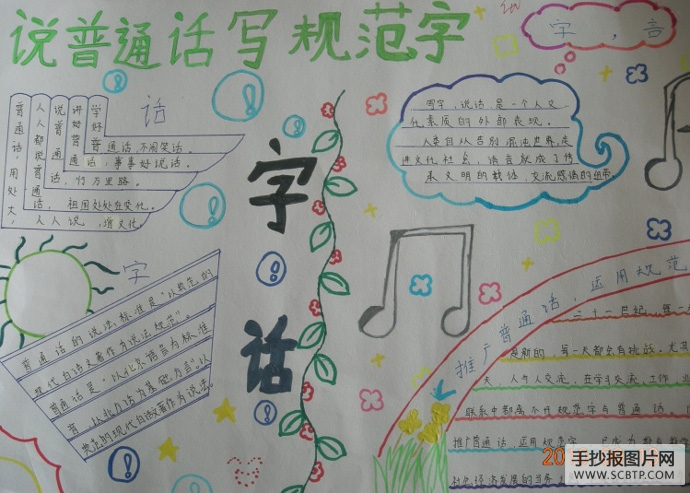 说普通话写规范字
字，言
话
学好普通话，不闹笑话。
讲好普通话，事事好说话。
说普通话，行万里路。
人人都说普通话，祖国处处在变化。
普通话，用处大，人人说，
用字，说话，是一个人文
化素质的外部表现。
人类自从告别混沌世界，走
进文化社会，语言就成了传
承文明的载体，交流感情的纽带。
字
话
字
普通话的说法标准是“以典范的
现代白话文著作为语法规范”。
普通话是“以北京语音为标准
音，以北方话为基础方言，以
典范的现代白话文著作为语法
推广普通话，运用规范
二十一世纪，
人与人交流，在学习交流，工作
联系中都离不开规范字与普通话
推广普通话，运用规范字
社会经济发展的
20
手抄报图片网
WWW.SCBTP.COM